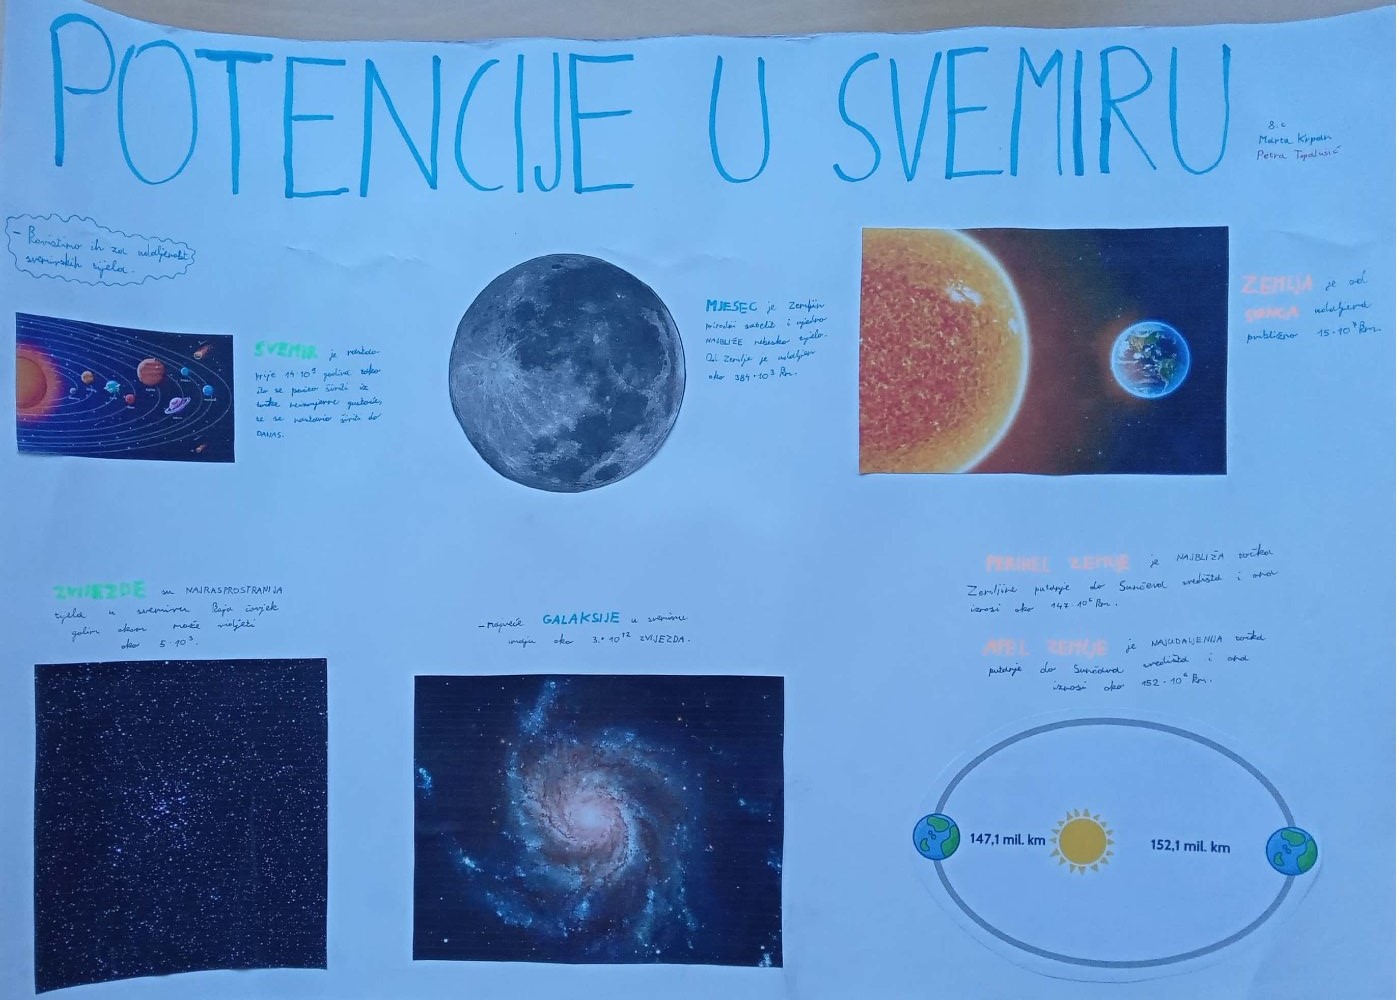 POTENCIJE U SVEMIRU
8.c
Marta Krpan
Petra
- Koristimo ih za udaljenost
svemirskih tijela.
SVEMIR je nastao
prije 14·10⁹ godina tako
što se počeo širiti iz
točke neizmjerne gustoće,
te se nastavio širiti do
DANAS.
MJESEC je Zemljin
prirodni satelit i ujedno
NAJBLIŽE nebesko tijelo.
Od Zemlje je udaljen
oko 384·10³ km.
ZEMLJA je od
SUNCA udaljena
približno 15·10⁷ km.
ZVIJEZDE su NAJRASPROSTRANIJA
tijela u svemiru koja čovjek
golim okom može vidjeti
oko 5·10³.
- Moguće GALAKSIJE u svemiru
imaju oko 3·10¹² ZVIJEZDA.
PERIHEL ZEMLJE je NAJBLIŽA točka
Zemljine putanje do Sunčeva središta i ona
iznosi oko 147·10⁶ km.
AFEL ZEMLJE je NAJUDALJENIJA točka
putanje do Sunčeva središta i ona
iznosi oko 152·10⁶ km.
147,1 mil. km
152,1 mil. km